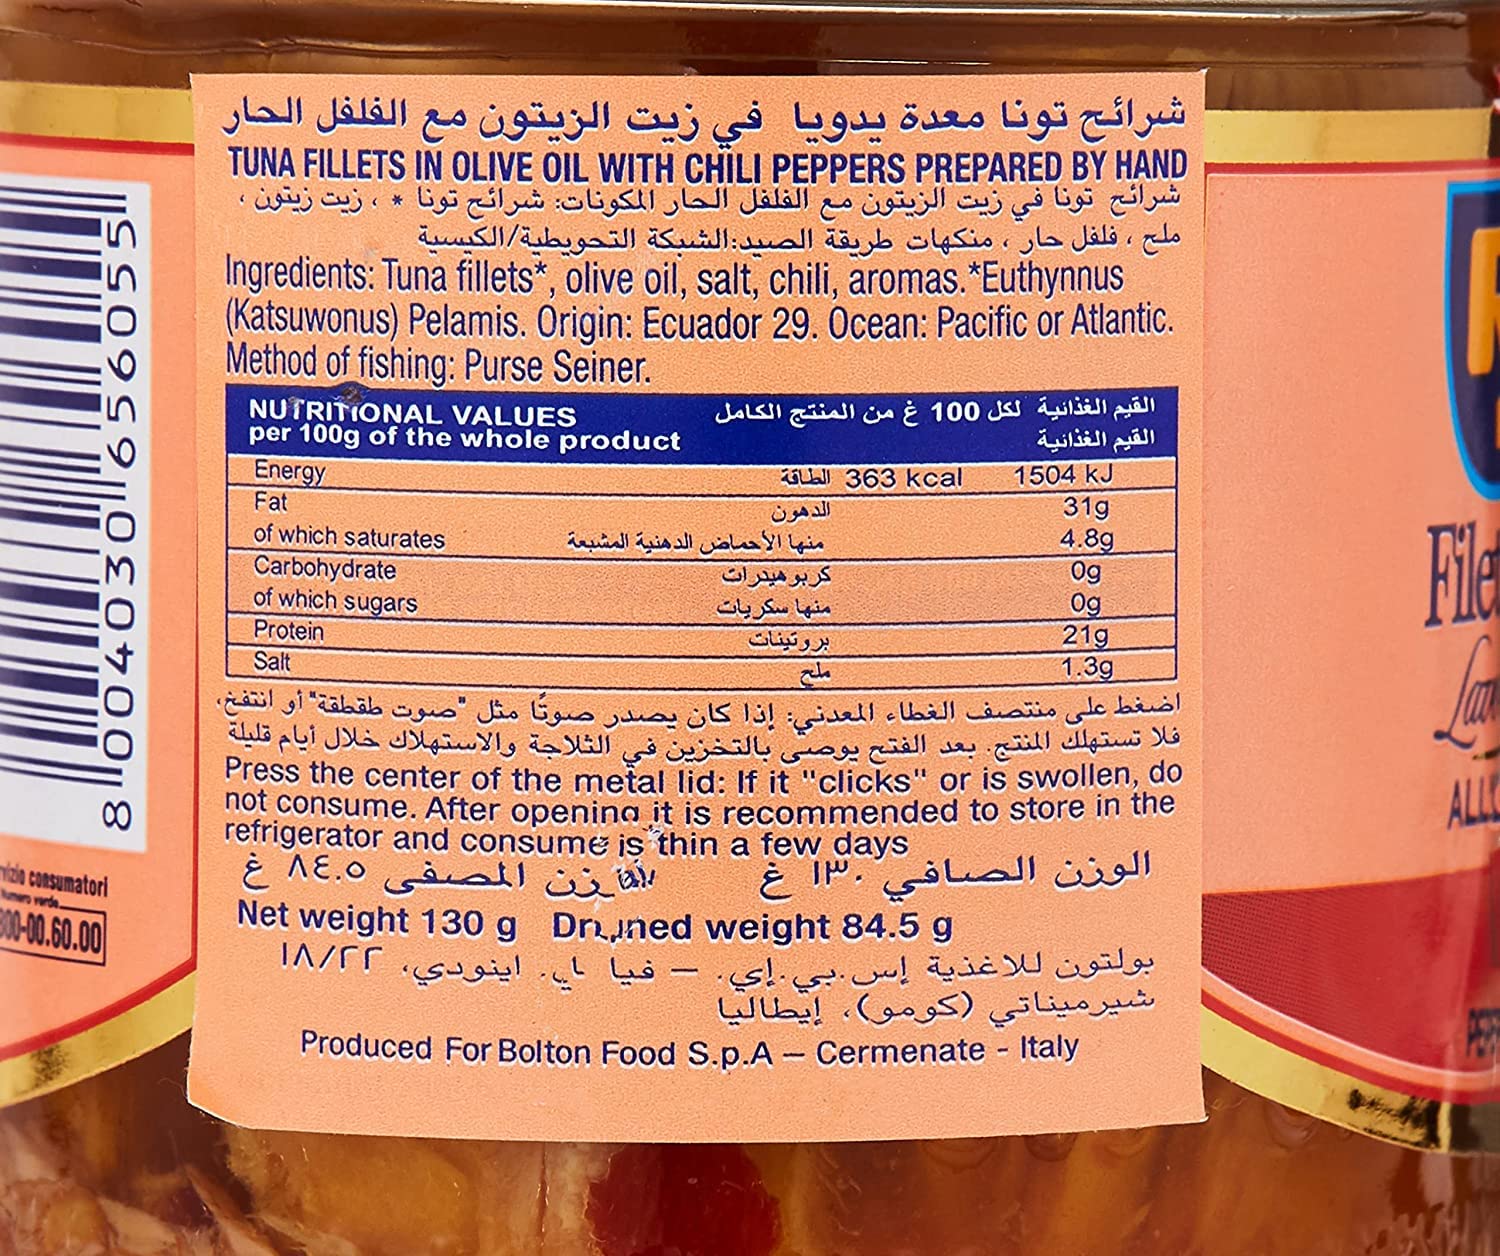 شرائح تونا معدة يدويا في زيت الزيتون مع الفلفل الحار
TUNA FILLETS IN OLIVE OIL WITH CHILI PEPPERS PREPARED BY HAND
شرائح تونا في زيت الزيتون مع الفلفل الحار المكونات: شرائح تونا * ، زيت زيتون ،
ملح ، فلفل حار ، منكهات طريقة الصيد:الشبكة التحويطية/الكيسية
Ingredients: Tuna fillets*, olive oil, salt, chili, aromas.*Euthynnus
(Katsuwonus) Pelamis. Origin: Ecuador 29. Ocean: Pacific or Atlantic.
Method of fishing: Purse Seiner.
NUTRITIONAL VALUES القيم الغذائية لكل 100 غ من المنتج الكامل
per 100g of the whole product القيم الغذائية
Energy الطاقة 363 kcal 1504 kJ
Fat الدهون 31g
of which saturates منها الأحماض الدهنية المشبعة 4.8g
Carbohydrate كربوهيدرات 0g
of which sugars منها سكريات 0g
Protein بروتينات 21g
Salt ملح 1.3g
اضغط على منتصف الغطاء المعدني: إذا كان يصدر صوتًا مثل "صوت طقطقة" أو انتفخ،
فلا تستهلك المنتج. بعد الفتح يوصى بالتخزين في الثلاجة والاستهلاك خلال أيام قليلة
Press the center of the metal lid: If it "clicks" or is swollen, do
not consume. After opening it is recommended to store in the
refrigerator and consume is thin a few days
الوزن الصافي ١٣٠ غ المصفى ٨٤.٥ غ
Net weight 130 g weight 84.5 g
بولتون للاغذية إس.بي.إي. – فيا اينودي، ١٨/٢٢
شيرميناتي (كومو)، إيطاليا
Produced For Bolton Food S.p.A – Cermenate - Italy
8 004030 656055
consumatori
Numero verde
800-00.60.00